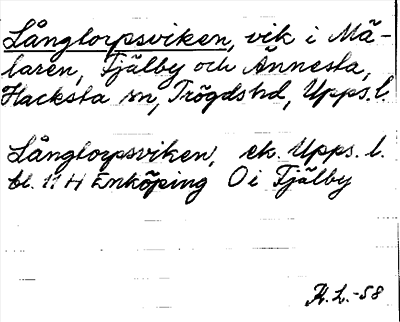 Långtorpsviken, vik i Mä-
laren, Fjälby och Ännesta,
Hacksta sn, Trögds hd, Upps. l.
Långtorpsviken, ek. Upps. l.
bl. 11 H Enköping O i Fjälby
H. L. -58